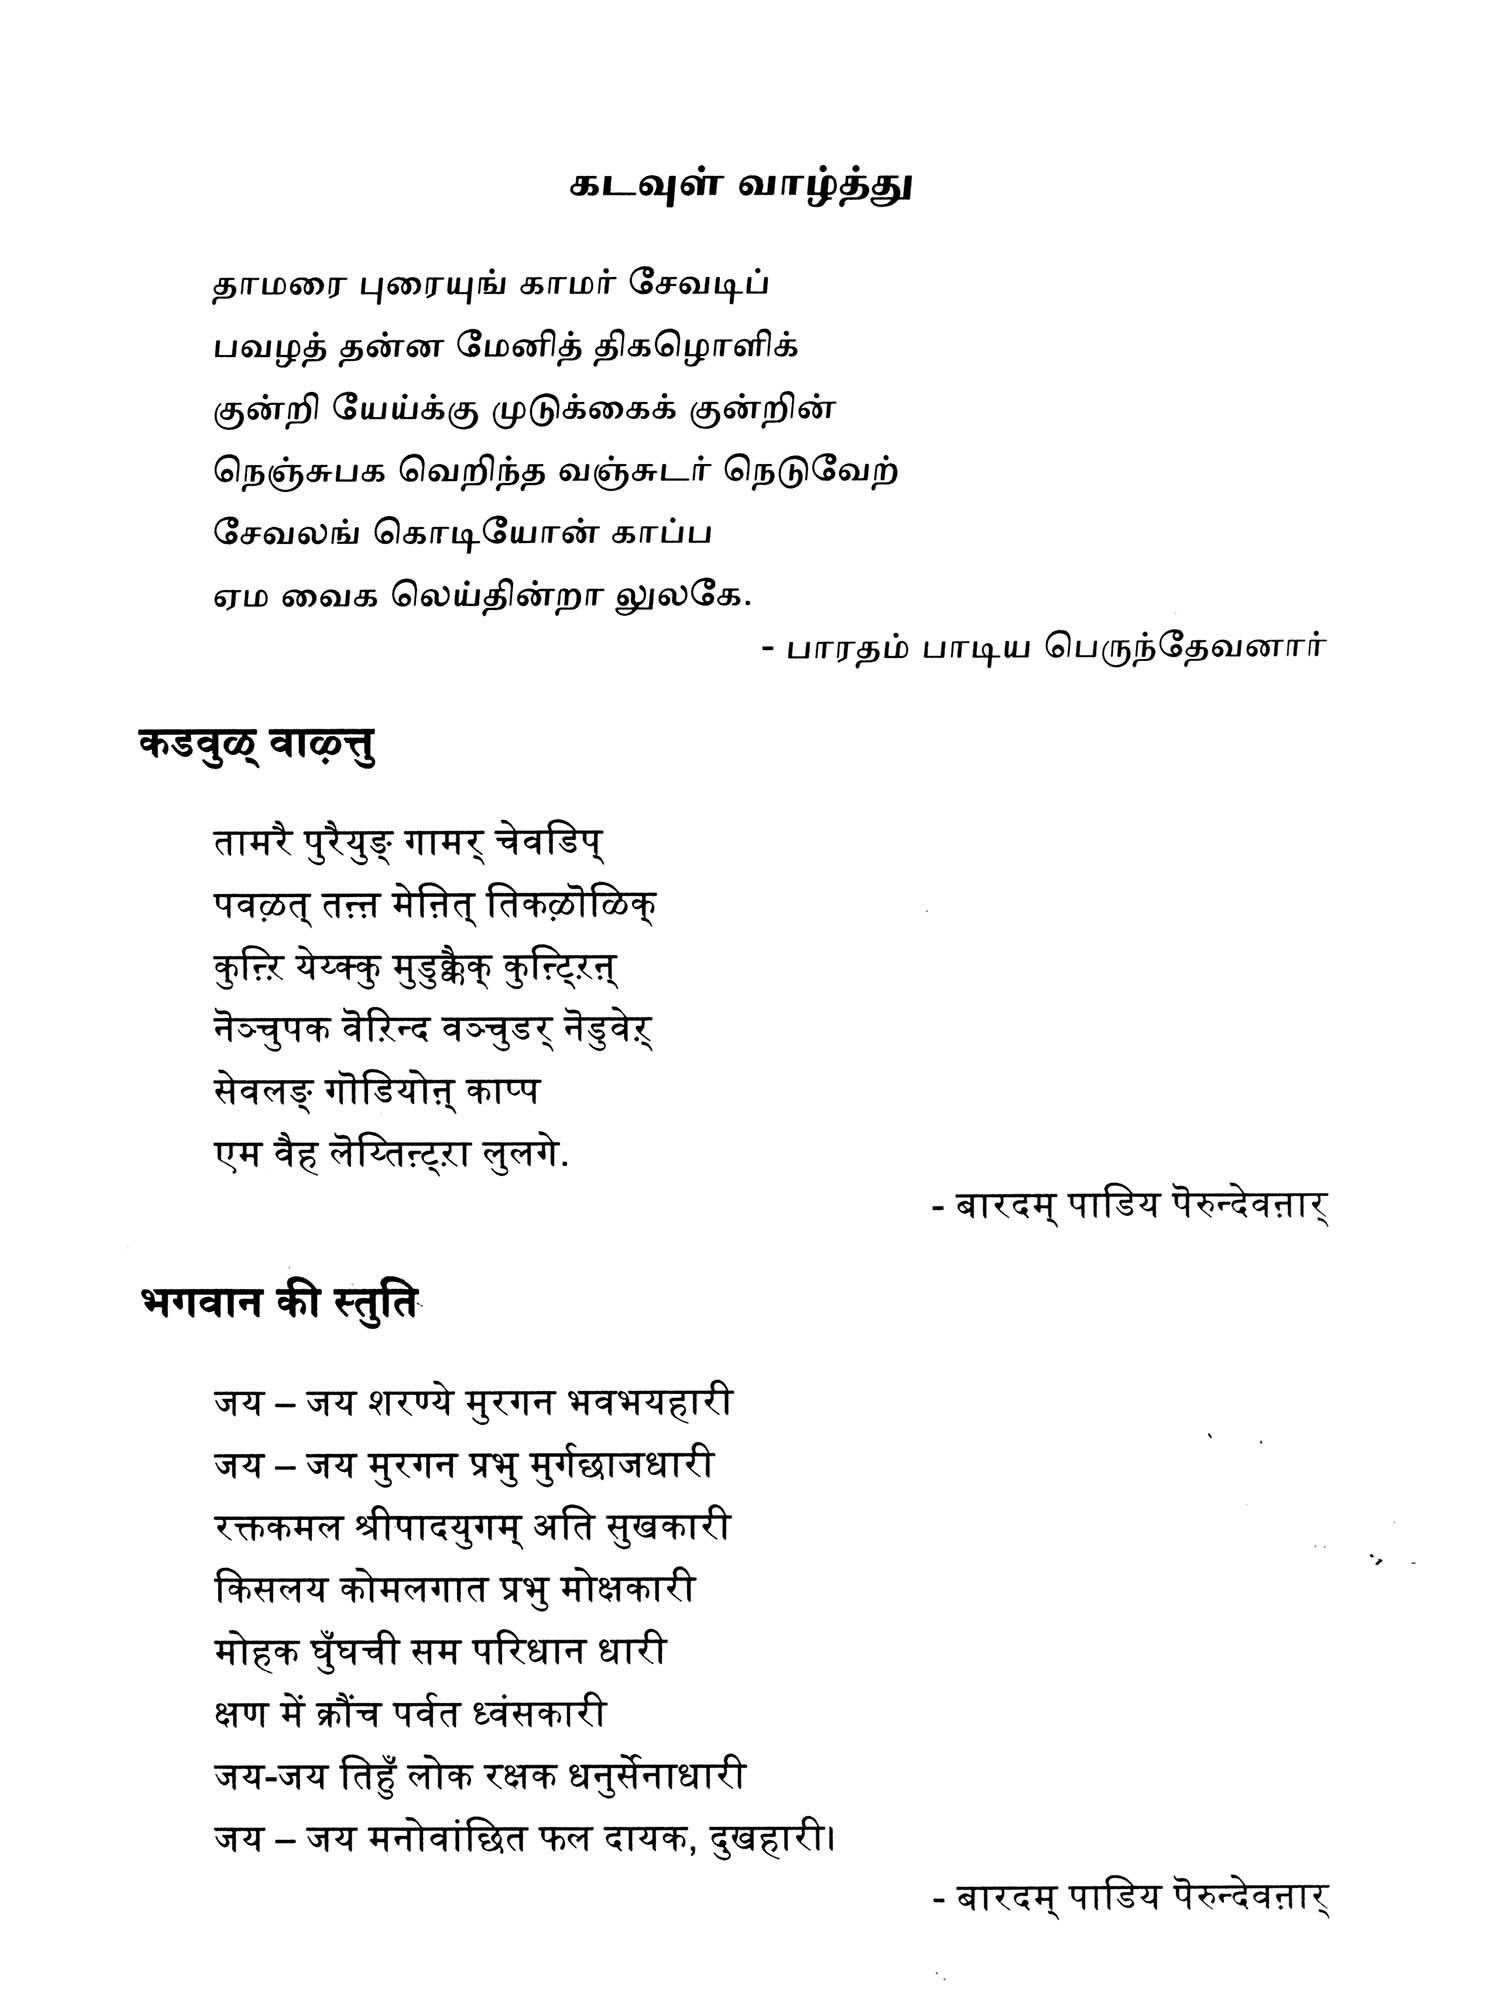 கடவுள் வாழ்த்து
தாமரை புரையுங் காமர் சேவடிப்
பவழத் தன்ன மேனித் திகழொளிக்
குன்றி யேய்க்கு முடுக்கைக் குன்றின்
நெஞ்சுபக வெறிந்த வஞ்சுடர் நெடுவேற்
சேவலங் கொடியோன் காப்ப
ஏம வைக லெய்தின்றா லுலகே.
- பாரதம் பாடிய பெருந்தேவனார்
कडवुळ् वाऴ्त्तु
तामरै पुरैयुङ् गामर् चेवडिप्
पवऴत् तऩ्ऩ मेऩित् तिकऴॊळिक्
कुऩ्ऱि येय्क्कु मुडुक्कैक् कुऩ्ट्रिऩ्
नॆञ्चुपक वॆऱिन्द वञ्चुडर् नॆडुवेऱ्
सेवलङ् गॊडियोऩ् काप्प
एम वैह लॆय्तिऩ्ट्रा लुलगे.
- बारदम् पाडिय पॆरुन्देवऩार्
भगवान की स्तुति
जय – जय शरण्ये मुरगन भवभयहारी
जय – जय मुरगन प्रभु मुर्गछाजधारी
रक्तकमल श्रीपादयुगम् अति सुखकारी
किसलय कोमलगात प्रभु मोक्षकारी
मोहक घुँघची सम परिधान धारी
क्षण में क्रौंच पर्वत ध्वंसकारी
जय-जय तिहुँ लोक रक्षक धनुर्सेनाधारी
जय – जय मनोवांछित फल दायक, दुखहारी।
- बारदम् पाडिय पॆरुन्देवऩार्